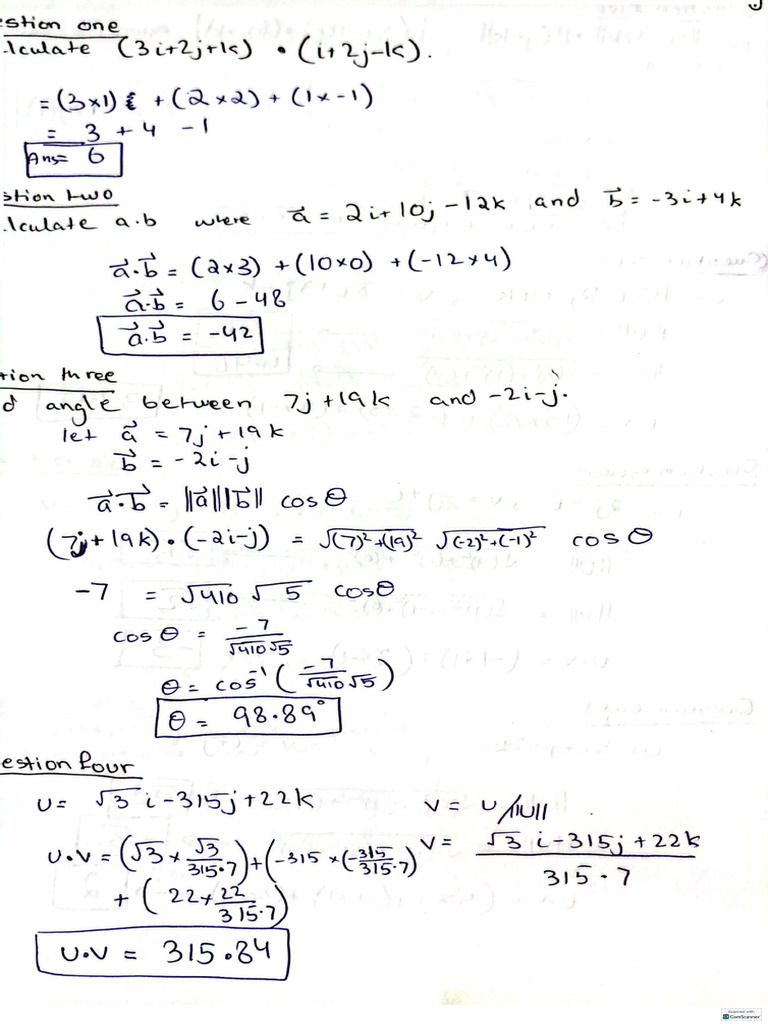 estion one
lculate (3i+2j+k) • (i+2j-k).
= (3×1) + (2×2) + (1×-1)
= 3 + 4 - 1
Ans= 6
stion two
lculate a.b where a⃗ = 2i+10j-12k and b⃗ = -3i+4k
a⃗·b⃗ = (2×3) + (10×0) + (-12×4)
a⃗·b⃗ = 6-48
a⃗·b⃗ = -42
tion three
d angle between 7j+19k and -2i-j.
let a⃗ = 7j+19k
b⃗ = -2i-j
a⃗·b⃗ = ||a⃗|| ||b⃗|| cosθ
(7j+19k)•(-2i-j) = √(7)²+(19)² √(-2)²+(-1)² cosθ
-7 = √410 √5 cosθ
cosθ = -7/√410√5
θ = cos⁻¹(-7/√410√5)
θ = 98.89°
estion four
u= √3i-315j+22k v= u/||u||
u·v = (√3 × √3/315.7) + (-315 × (-315/315.7) v= √3i-315j+22k/315.7
+ (22×22/315.7)
u·v = 315.84
Scanned with
CS CamScanner